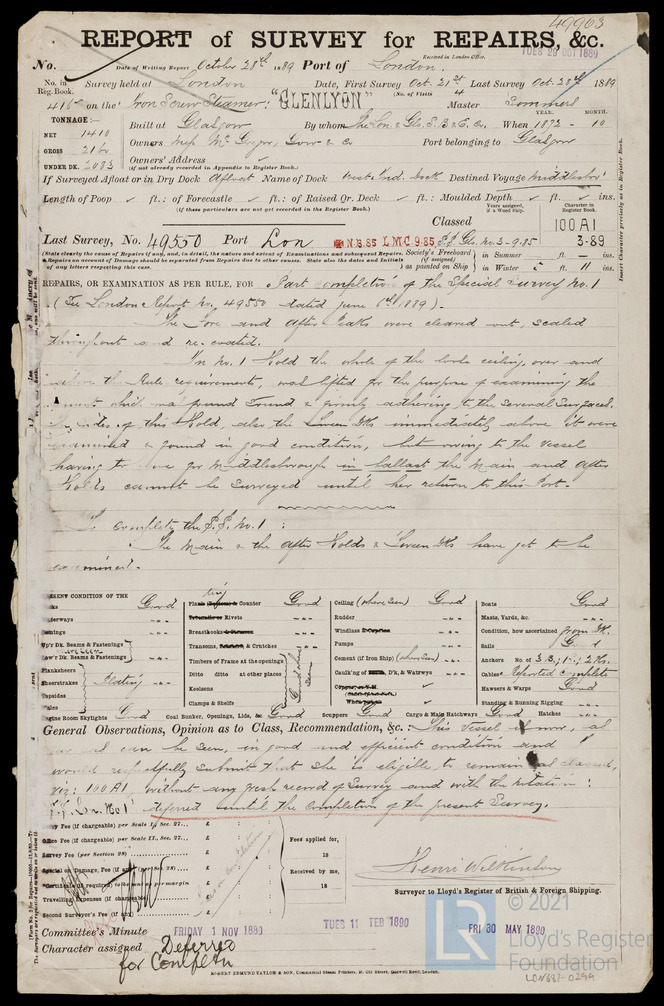 49963
REPORT of SURVEY for REPAIRS, &c.
TUES 29 OCT 1889
Received in London Office.
No. Date of Writing Report October 28th 1889 Port of London.
No. in Reg. Book. Survey held at London Date, First Survey Oct. 21st Last Survey Oct. 28th 1889
(No. of Visits 4
on the Iron Screw Steamer: "GLENLYON" Master
TONNAGE:— YEAR. MONTH.
NET 1410 Built at Glasgow By whom The Lon. & Gls. S.B. & E. Co. When 1872 - 10
GROSS Owners Mc Gregor, Gow & Co Port belonging to Glasgow
UNDER DK. 2083 Owners' Address
(if not already recorded in Appendix to Register Book.)
If Surveyed Afloat or in Dry Dock Afloat Name of Dock West Ind. Dock Destined Voyage Middlesbro'
Length of Poop ft.: of Forecastle ft.: of Raised Qr. Deck ft.: Moulded Depth ft. ins.
(if these particulars are not yet recorded in the Register Book.)
Years assigned, if a Wood Ship. Character in Register Book.
Classed 100A1
Last Survey, No. 49550 Port Lon N.B.85 LMC 9.85 S.S. Gls. No. 3-9.85 3.89
(State clearly the cause of Repairs if any, and, in detail, the nature and extent of Examinations and subsequent Repairs.
Repairs on account of Damage should be separated from Repairs due to other causes. State also the dates and Initials
of any letters respecting this case.
Society's Freeboard (if assigned) as painted on Ship in Summer ft. — ins.
in Winter ft. 11 ins.
Insert Character precisely as in Register Book.
REPAIRS, OR EXAMINATION AS PER RULE, FOR Part completion of the Special Survey No. 1
(See London Report No. 49550 dated June 6th 1889).
The Fore and After Peaks were cleared out, scaled
throughout and re-coated.
In No. 1 Hold the whole of the loose ceiling, over and
the Rule requirement, was lifted for the purpose of examining the
cement which was found sound & firmly adhering to the several surfaces.
sides of this Hold, also the Tween Dks immediately above it were
examined & found in good condition, but owing to the vessel
having to leave for Middlesborough in ballast the Main and After
Holds cannot be surveyed until her return to this Port.
To complete the S.S. No. 1:
The Main & the After Holds & Tween Dks have yet to be
examined.
PRESENT CONDITION OF THE
Good Counter Good Ceiling (where seen) Good Boats Good
or Rivets Rudder Masts, Yards, &c.
Breasthooks Windlass Condition, how ascertained from Dk.
Upr Dk. Beams & Fastenings Transoms, & Crutches Pumps Sails Good
Low'r Dk. Beams & Fastenings Timbers of Frame at the openings Cement (if Iron Ship) (where seen) Anchors No. of 3 B.; 1 S.; 2 Ks.
Planksheers Ditto ditto at other places Caulk'ng of D'k, & Watrwys Cables Reported complete
Sheerstrakes Plating Keelsons Hawsers & Warps Good
Topsides Clamps & Shelfs Standing & Running Rigging
Engine Room Skylights Good Coal Bunker, Openings, Lids, &c. Good Scuppers Good Cargo & Main Hatchways Good Hatches
General Observations, Opinion as to Class, Recommendation, &c.: This Vessel is now, as
can be seen, in good and efficient condition and
would respectfully submit that she is eligible to remain as classed,
viz: 100A1 without any fresh record of Survey and with the notation:
S.S. Ln. No. 1 deferred until the completion of the present Survey.
Fee (if chargeable) per Scale I., Sec. 27... £
Office Fee (if chargeable) per Scale II., Sec. 27... £
Survey Fee (per Section 28) £
Special or Damage Fee, if any (per Sec. 28) £
Certificate (if required) to be sent as per margin
Travelling Expenses (if chargeable) £
Second Surveyor's Fee (if any) £
Fees applied for,
18
Received by me,
18
Henri Wilkinson
Surveyor to Lloyd's Register of British & Foreign Shipping.
Committee's Minute FRIDAY 1 NOV 1889 TUES 11 FEB 1890 FRI 30 MAY 1890
Character assigned Deferred
for Completn
© 2021
LR
Lloyd's Register
Foundation
ROBERT EDMUND TAYLOR & SON, Commercial Steam Printers, 19, Old Street, Goswell Road, London.
LON687-0299